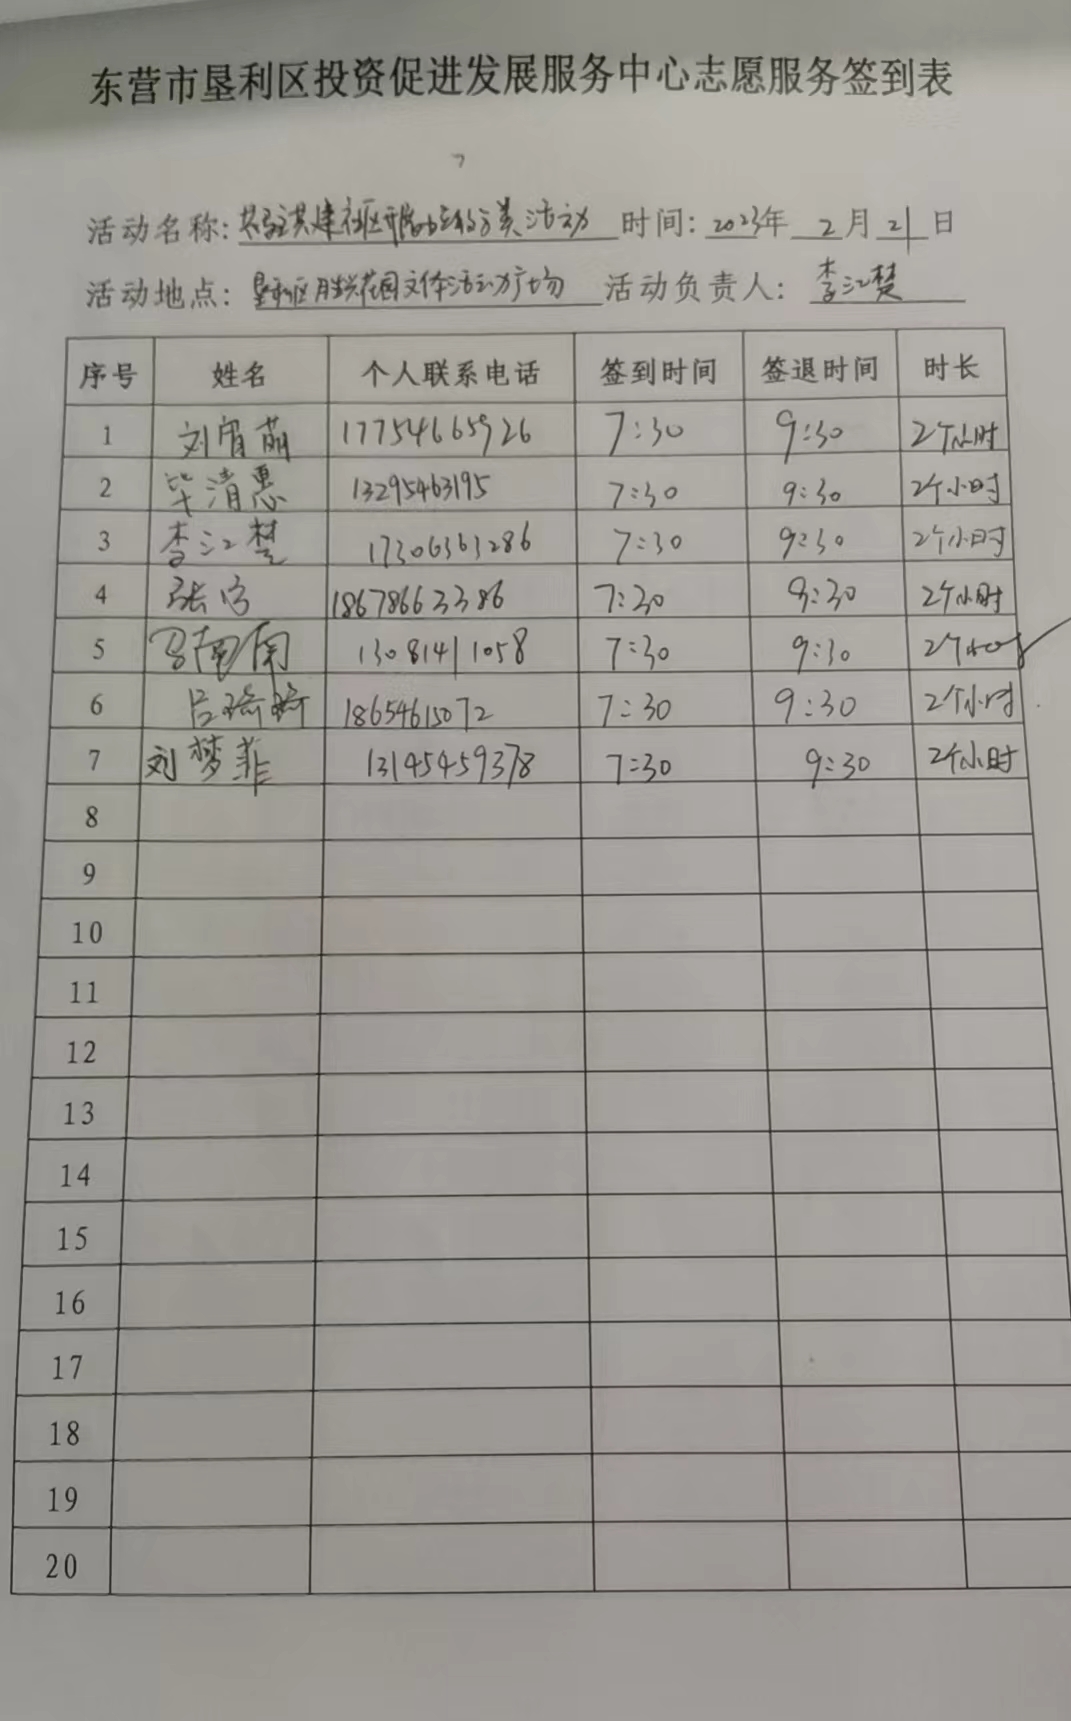 东营市垦利区投资促进发展服务中心志愿服务签到表
活动名称: 共建社区开展垃圾分类活动 时间: 2023年 2 月 21 日
活动地点: 垦利区胜兴花园文体活动广场 活动负责人: 李江楚
序号 姓名 个人联系电话 签到时间 签退时间 时长
1 刘宵萌 17754665926 7:30 9:30 2个小时
2 毕清惠 13295463195 7:30 9:30 2个小时
3 李江楚 17306363286 7:30 9:30 2个小时
4 张 18678663386 7:30 9:30 2个小时
5 13081411058 7:30 9:30 2个小时
6 吕琦琦 18654615072 7:30 9:30 2个小时
7 刘梦菲 13145459378 7:30 9:30 2个小时
8
9
10
11
12
13
14
15
16
17
18
19
20